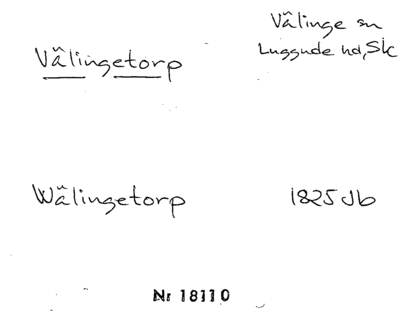 Vålinge sn
Vålingetorp
Luggude hd, Sk
Wålingetorp
1825 Jb
Nr 18110